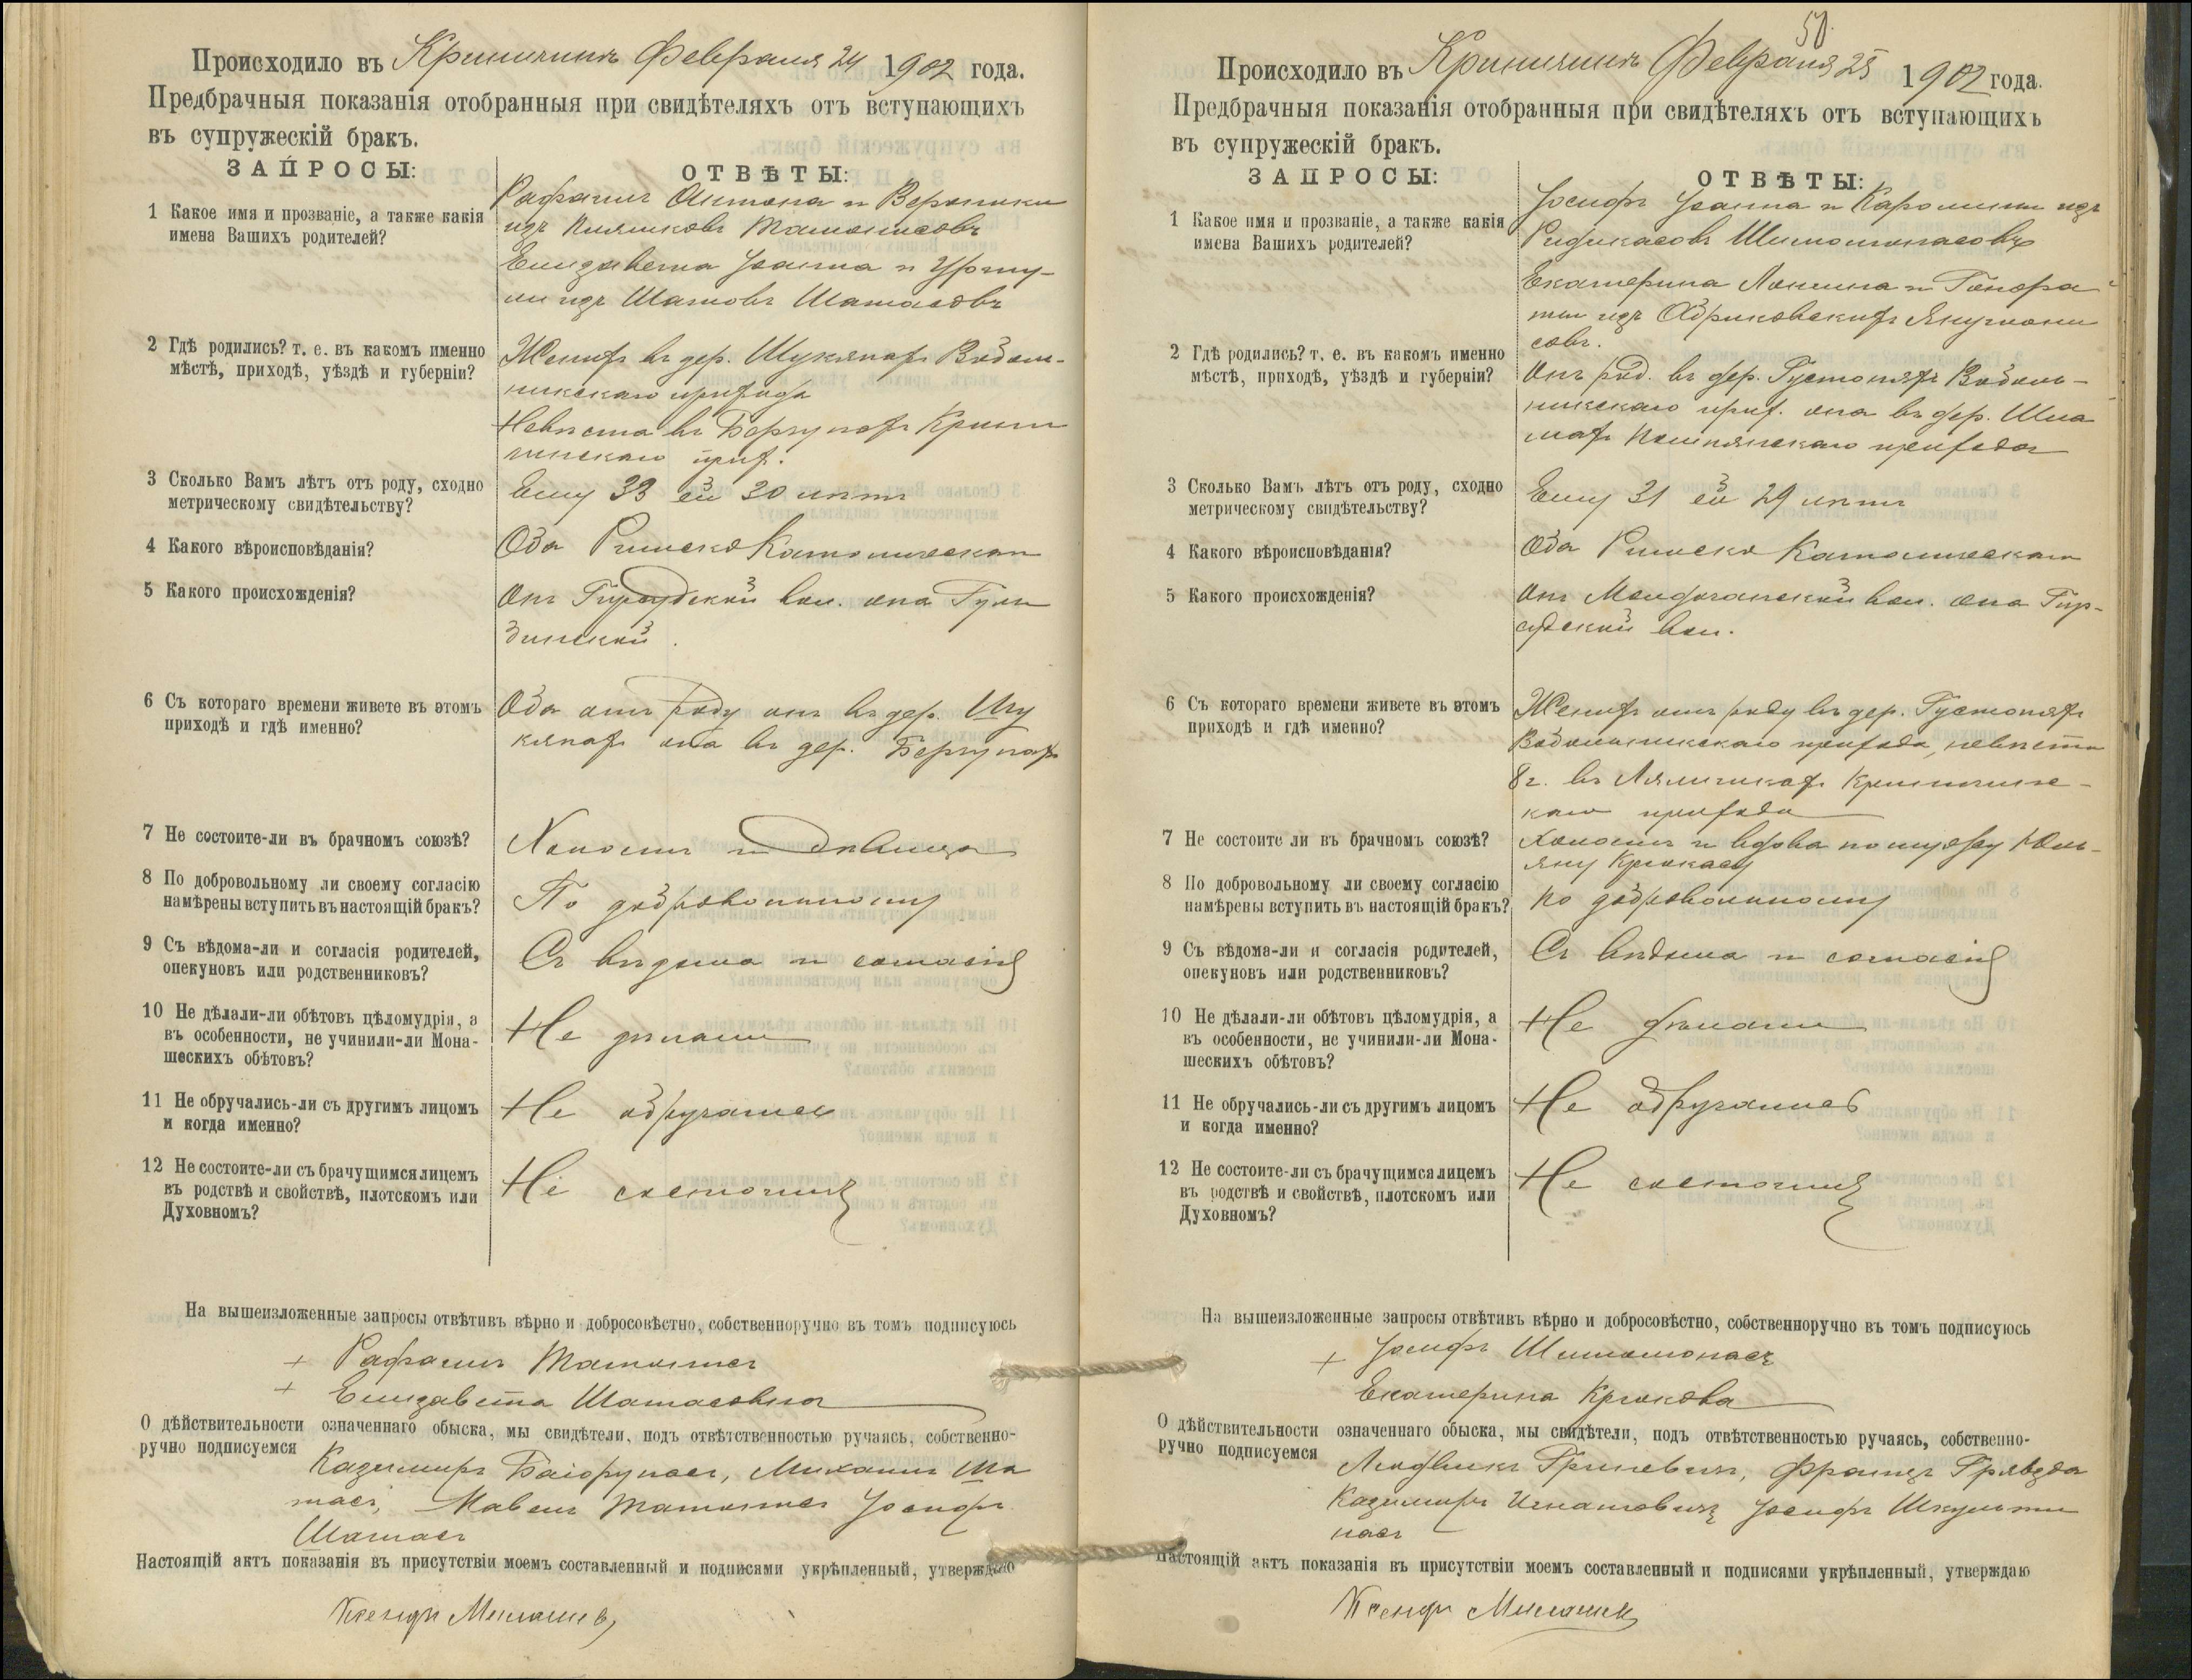 Происходило въ Криничинѣ Февраля 24 1902 года.
Предбрачныя показанія отобранныя при свидѣтеляхъ отъ вступающихъ
въ супружескій бракъ.
ЗАПРОСЫ:
ОТВѢТЫ:
1 Какое имя и прозваніе, а также какія
имена Вашихъ родителей?
Рафаилъ Антона и Вероники
изъ
Елизавета Іоанна и Уршу-
ли изъ Шатовъ Шатасовъ
2 Гдѣ родились? т. е. въ какомъ именно
мѣстѣ, приходѣ, уѣздѣ и губерніи?
Женихъ въ дер. Шукянахъ Вабаль-
никскаго прихода
Невѣста въ Бергунахъ Крини
чинскаго прих.
3 Сколько Вамъ лѣтъ отъ роду, сходно
метрическому свидѣтельству?
Ему 33 ей 30 лѣтъ
4 Какого вѣроисповѣданія?
Оба Римско Католическаго
5 Какого происхожденія?
Онъ Гирсудской вол. она Гули
бинской.
6 Съ котораго времени живете въ этомъ
приходѣ и гдѣ именно?
Оба отъ роду онъ въ дер. Шу
кянахъ она въ дер. Бергунахъ
7 Не состоите-ли въ брачномъ союзѣ?
Холостъ и дѣвица
8 По добровольному ли своему согласію
намѣрены вступить въ настоящій бракъ?
По добровольному
9 Съ вѣдома-ли и согласія родителей,
опекуновъ или родственниковъ?
Съ вѣдома и согласія
10 Не дѣлали-ли обѣтовъ цѣломудрія, а
въ особенности, не учинили-ли Мона-
шескихъ обѣтовъ?
Не дѣлали
11 Не обручались-ли съ другимъ лицомъ
и когда именно?
Не обручались
12 Не состоите-ли съ брачущимся лицемъ
въ родствѣ и свойствѣ, плотскомъ или
Духовномъ?
Не состоимъ
На вышеизложенные запросы отвѣтивъ вѣрно и добросовѣстно, собственноручно въ томъ подписуюсь
+ Рафаилъ
+ Елизавета Шатасовна
О дѣйствительности означеннаго обыска, мы свидѣтели, подъ отвѣтственностью ручаясь, собственно-
ручно подписуемся
Казимиръ Баіорунасъ, Михаилъ Ша
тасъ, Іосифъ
Шатасъ
Настоящій актъ показанія въ присутствіи моемъ составленный и подписями укрѣпленный, утверждаю
Ксендзъ
50.
Происходило въ Криничинѣ Февраля 25 1902 года.
Предбрачныя показанія отобранныя при свидѣтеляхъ отъ вступающихъ
въ супружескій бракъ.
ЗАПРОСЫ:
ОТВѢТЫ:
1 Какое имя и прозваніе, а также какія
имена Вашихъ родителей?
Іосифъ Іоанна и Каролины изъ
Екатерина и Гонора
ты изъ
совъ.
2 Гдѣ родились? т. е. въ какомъ именно
мѣстѣ, приходѣ, уѣздѣ и губерніи?
Онъ род. въ дер. Густоняхъ Вабаль-
никскаго прих. она въ дер. Шила
прихода
3 Сколько Вамъ лѣтъ отъ роду, сходно
метрическому свидѣтельству?
Ему 31 ей 29 лѣтъ
4 Какого вѣроисповѣданія?
Оба Римско Католическаго
5 Какого происхожденія?
Онъ вол. она Гир-
судской вол.
6 Съ котораго времени живете въ этомъ
приходѣ и гдѣ именно?
Женихъ отъ роду въ дер. Густоняхъ
Вабальникскаго прихода, невѣста
8 г. въ Криничинс-
каго прихода
7 Не состоите ли въ брачномъ союзѣ?
Холостъ и вдова по мужу Юль-
яну
8 По добровольному ли своему согласію
намѣрены вступить въ настоящій бракъ?
По добровольному
9 Съ вѣдома-ли и согласія родителей,
опекуновъ или родственниковъ?
Съ вѣдома и согласія
10 Не дѣлали-ли обѣтовъ цѣломудрія, а
въ особенности, не учинили-ли Мона-
шескихъ обѣтовъ?
Не дѣлали
11 Не обручались-ли съ другимъ лицомъ
и когда именно?
Не обручались
12 Не состоите-ли съ брачущимся лицемъ
въ родствѣ и свойствѣ, плотскомъ или
Духовномъ?
Не состоимъ
На вышеизложенные запросы отвѣтивъ вѣрно и добросовѣстно, собственноручно въ томъ подписуюсь
+ Іосифъ
Екатерина Крюкова
О дѣйствительности означеннаго обыска, мы свидѣтели, подъ отвѣтственностью ручаясь, собственно-
ручно подписуемся
Людвикъ Гриневичъ, Францъ
Казимиръ Игнатовичъ Іосифъ Шкульти
насъ
Настоящій актъ показанія въ присутствіи моемъ составленный и подписями укрѣпленный, утверждаю
Ксендзъ